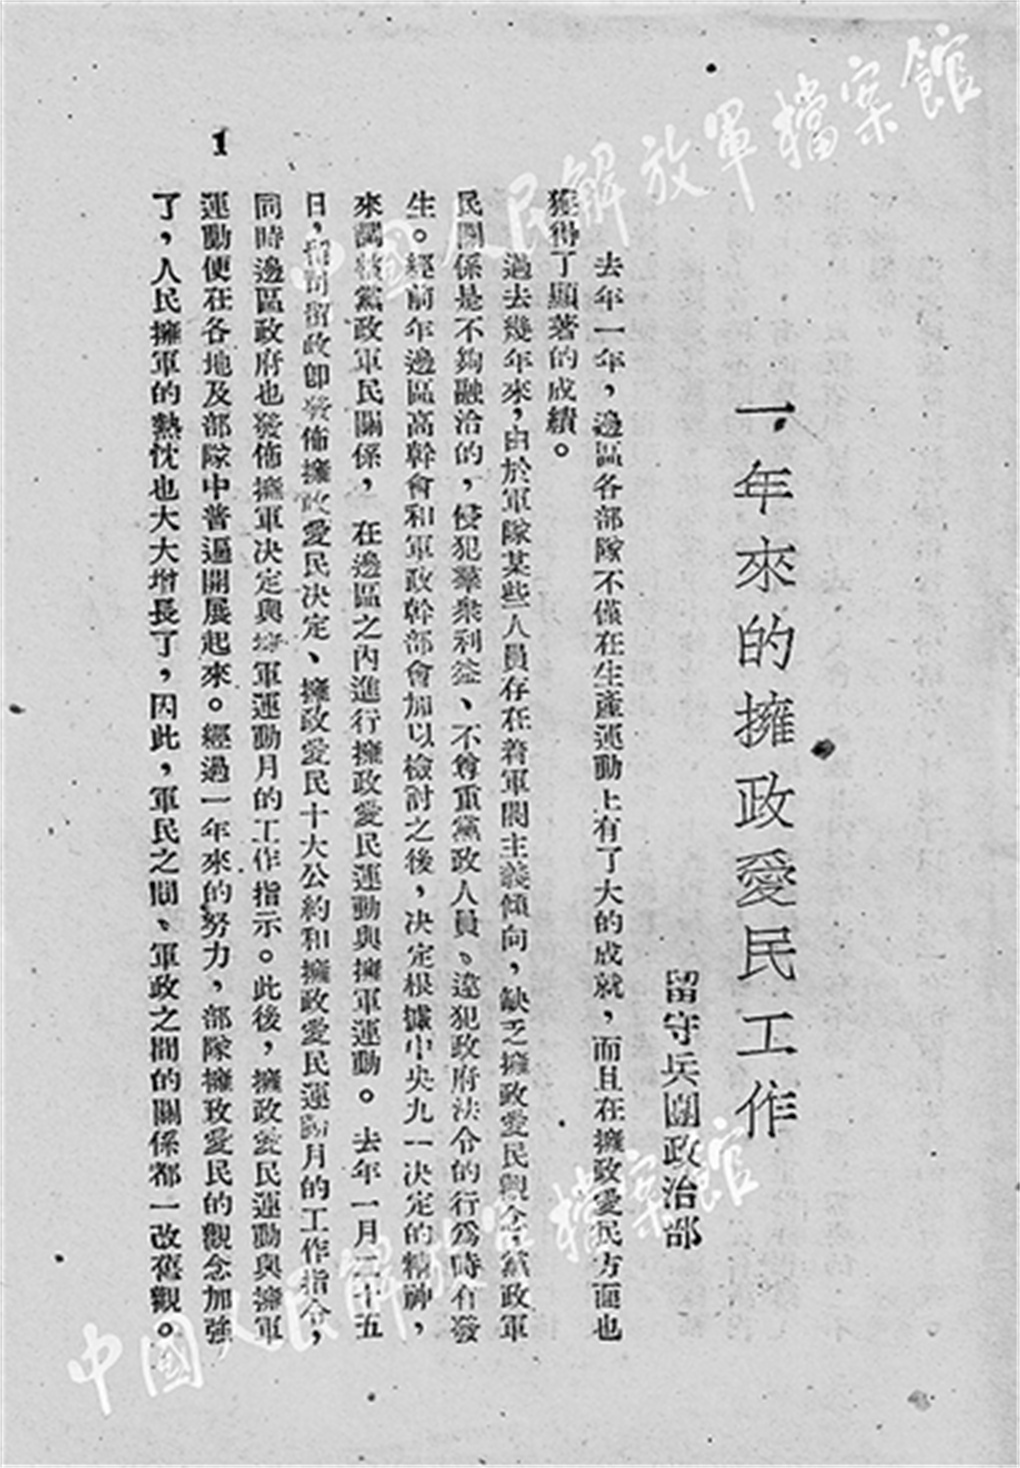 一年來的擁政愛民工作
留守兵團政治部
去年一年，邊區各部隊不僅在生產運動上有了大的成就，而且在擁政愛民方面也
獲得了顯著的成績。
過去幾年來，由於軍隊某些人員存在着軍閥主義傾向，缺乏擁政愛民觀念，黨政軍
民關係是不夠融洽的，侵犯羣衆利益、不尊重黨政人員、違犯政府法令的行爲時有發
生。經前年邊區高幹會和軍政幹部會加以檢討之後，决定根據中央九一决定的精神，
來調整黨政軍民關係，在邊區之內進行擁政愛民運動與擁軍運動。去年一月二十五
日，留司留政即發佈擁政愛民决定、擁政愛民十大公約和擁政愛民運動月的工作指令，
同時邊區政府也發佈擁軍决定與擁軍運動月的工作指示。此後，擁政愛民運動與擁軍
運動便在各地及部隊中普遍開展起來。經過一年來的努力，部隊擁政愛民的觀念加強
了，人民擁軍的熱忱也大大增長了，因此，軍民之間、軍政之間的關係都一改舊觀。
1
中國人民解放軍檔案館
中國人民解放軍檔案館